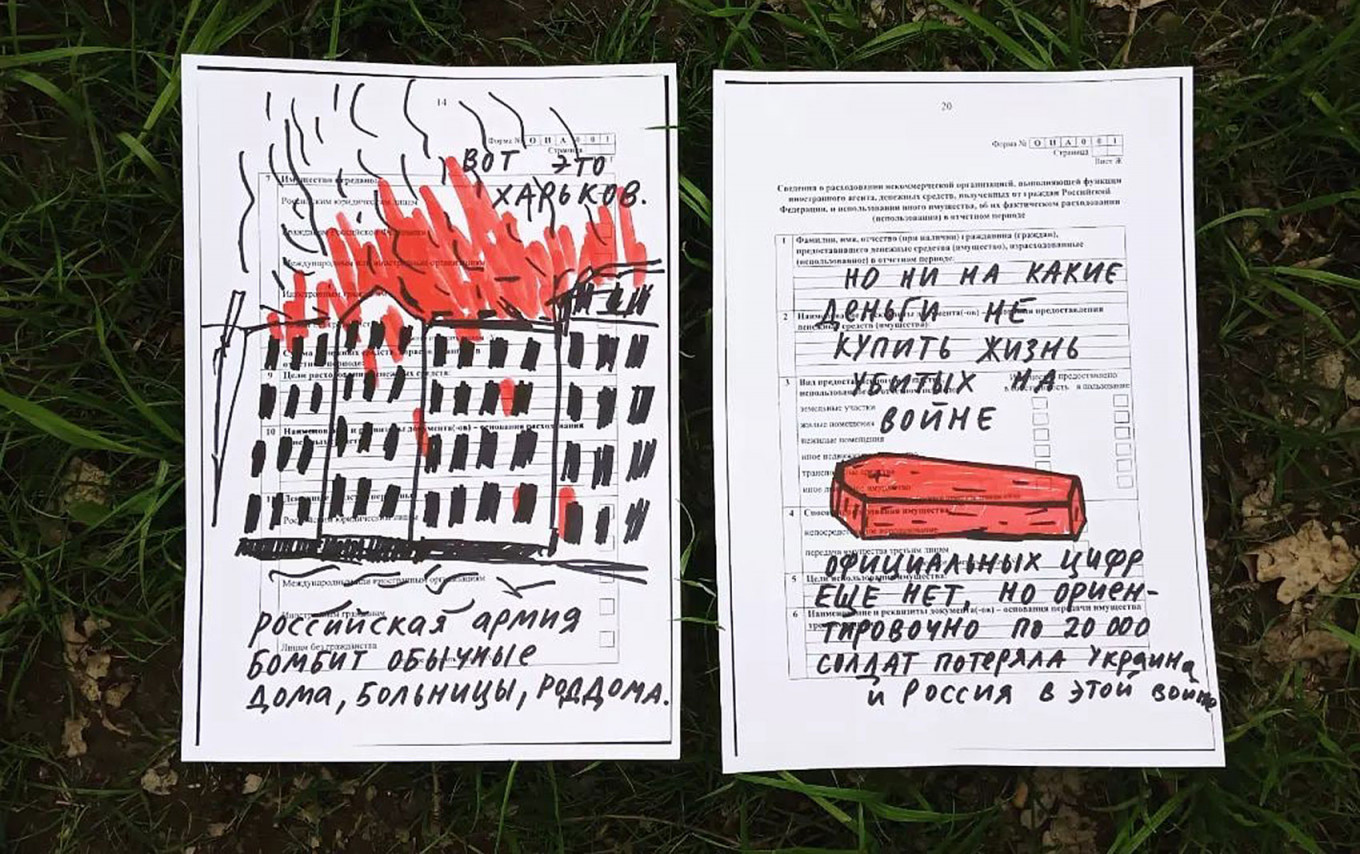 14
Форма № О И А 0 0 1
Страница
ВОТ ЭТО
ХАРЬКОВ.
7 Имущество передано:
Российским юридическим лицам
Гражданам Российской Федерации
Международным или иностранным организациям
Иностранным
9 Цели расходования денежных средств:
10 Наименование и реквизиты документа(-ов) – основания расходования
11
Российским юридическим лицам
Международным или иностранным организациям
Иностранным гражданам
Лицам без гражданства
РОССИЙСКАЯ АРМИЯ
БОМБИТ ОБЫЧНЫЕ
ДОМА, БОЛЬНИЦЫ, РОДДОМА.
20
Форма № О И А 0 0 1
Страница
Лист Ж
Сведения о расходовании некоммерческой организацией, выполняющей функции
иностранного агента, денежных средств, полученных от граждан Российской
Федерации, и использовании иного имущества, об их фактическом расходовании
(использовании) в отчетном периоде
1 Фамилия, имя, отчество (при наличии) гражданина (граждан),
предоставившего денежные средства (имущество), израсходованные
(использованное) в отчетном периоде:
НО НИ НА КАКИЕ
ДЕНЬГИ НЕ
2 реквизиты документа(-ов) предоставления
денежных средств (имущества):
КУПИТЬ ЖИЗНЬ
УБИТЫХ НА
ВОЙНЕ
3 Вид
предоставлено
в пользование
земельные участки
жилые помещения
нежилые помещения
иное
4 имущества
передача имущества третьим лицам
ОФИЦИАЛЬНЫХ ЦИФР
5 Цели использования имущества:
ЕЩЕ НЕТ, НО ОРИЕН-
6 Наименование и реквизиты документа(-ов) – основания передачи имущества
ТИРОВОЧНО ПО 20 000
СОЛДАТ ПОТЕРЯЛА УКРАИНА
И РОССИЯ В ЭТОЙ ВОЙНЕ